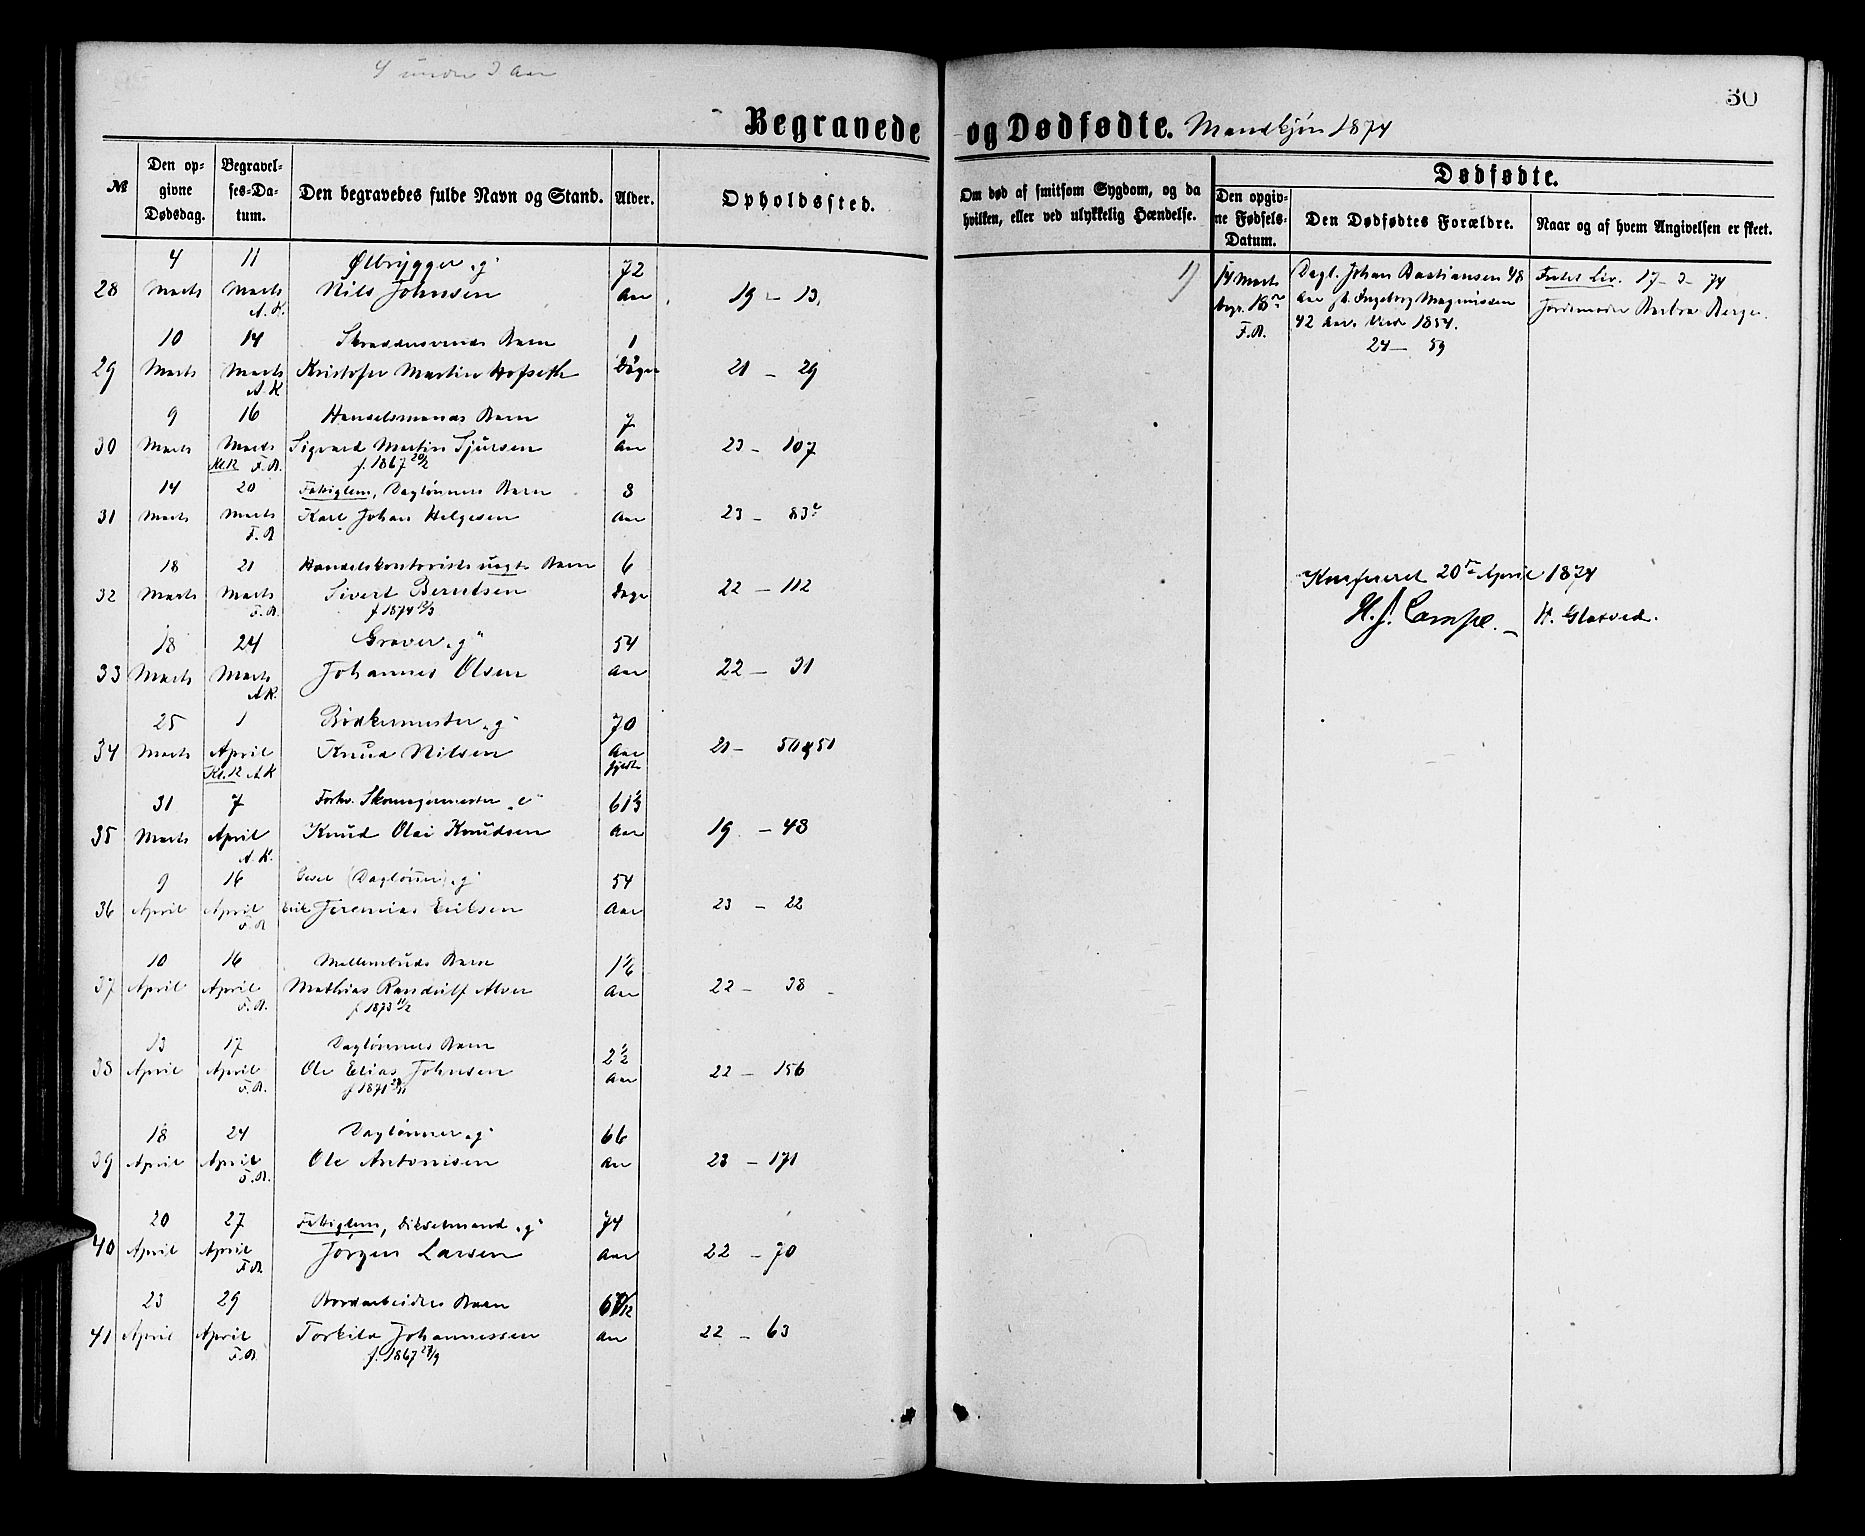 4 under 3 Aar
30
Begravede og Dødfødte. Mandkjøn 1874
№
Den opgivne Dødsdag.
Begravelses-Datum.
Den begravedes fulde Navn og Stand.
Alder.
Opholdssted.
Om død af smitsom Sygdom, og da hvilken, eller ved ulykkelig Hændelse.
Dødfødte.
Den opgivne Fødsels-Datum.
Den Dødfødtes Forældre.
Naar og af hvem Angivelsen er skeet.
4 11 Ølbrygger „g“ 72
28 Marts Marts Nils Johnsen Aar 19 - 13.
A. K.
10 14 Skræddersvends Barn 1
29 Marts Marts Kristofer Martin Hofseth Døgn 21 - 29
A. K
9 16 Handelsmands Barn 7
30 Marts Marts Sigvard Martin Sjursen Aar 23 - 107
Kl.K F. B. f. 1867 20/2
14 20 Fattiglem, Daglønners Barn 8
31 Marts Marts Karl Johan Helgesen Aar 23 - 83
F. B
18 21 Handelskontorists uegte Barn 6
32 Marts Marts Sivert Berntsen Dage 22 - 112
F. B. f 1874
18 24 Graver „g“ 54
33 Marts Marts Johannes Olsen Aar 22 - 31
A. K.
25 1 Bødkermester „g“ 70
34 Marts April Knud Nilsen Aar 21 - 50 & 51
Kl. K A. K fyldt
31 7 Forhv. Skomagermester „e“ 61 1/3
35 Marts April Knud Olai Knudsen Aar 19 - 48
A. K.
9 16 (Dagløner) „g“ 54
36 April April Jeremias Eriksen Aar 23 - 22
F. B
10 16 Møllersvends Barn 1 1/6
37 April April Mathias Randulf Alver Aar 22 - 38
F. B. f 1873 11/2
13 17 Dagløners Barn 2 1/2
38 April April Ole Elias Johnsen Aar 22 - 156
F. B. f 1871
18 24 Dagløner „g“ 66
39 April April Ole Antonisen Aar 23 - 171
F. B.
20 27 Fattiglem, „g“ 74
40 April April Jørgen Larsen Aar 22 - 70
F. B.
23 29 Bordarbeiders Barn 6
41 April April Torkild Johannessen Aar 22 - 63
F. B. f. 1867
1) 14 Marts Dagl. Johan Bastiansen 48 Aar Ingeborg Magnussen 42 Aar. Viede 1854.
begr. 18de F. B.
24 - 59
17 - 3 - 74
Jordemoder Barbra Berge.
Konfereret 20de April 1874
H. J. Lampe. H. Glatved.